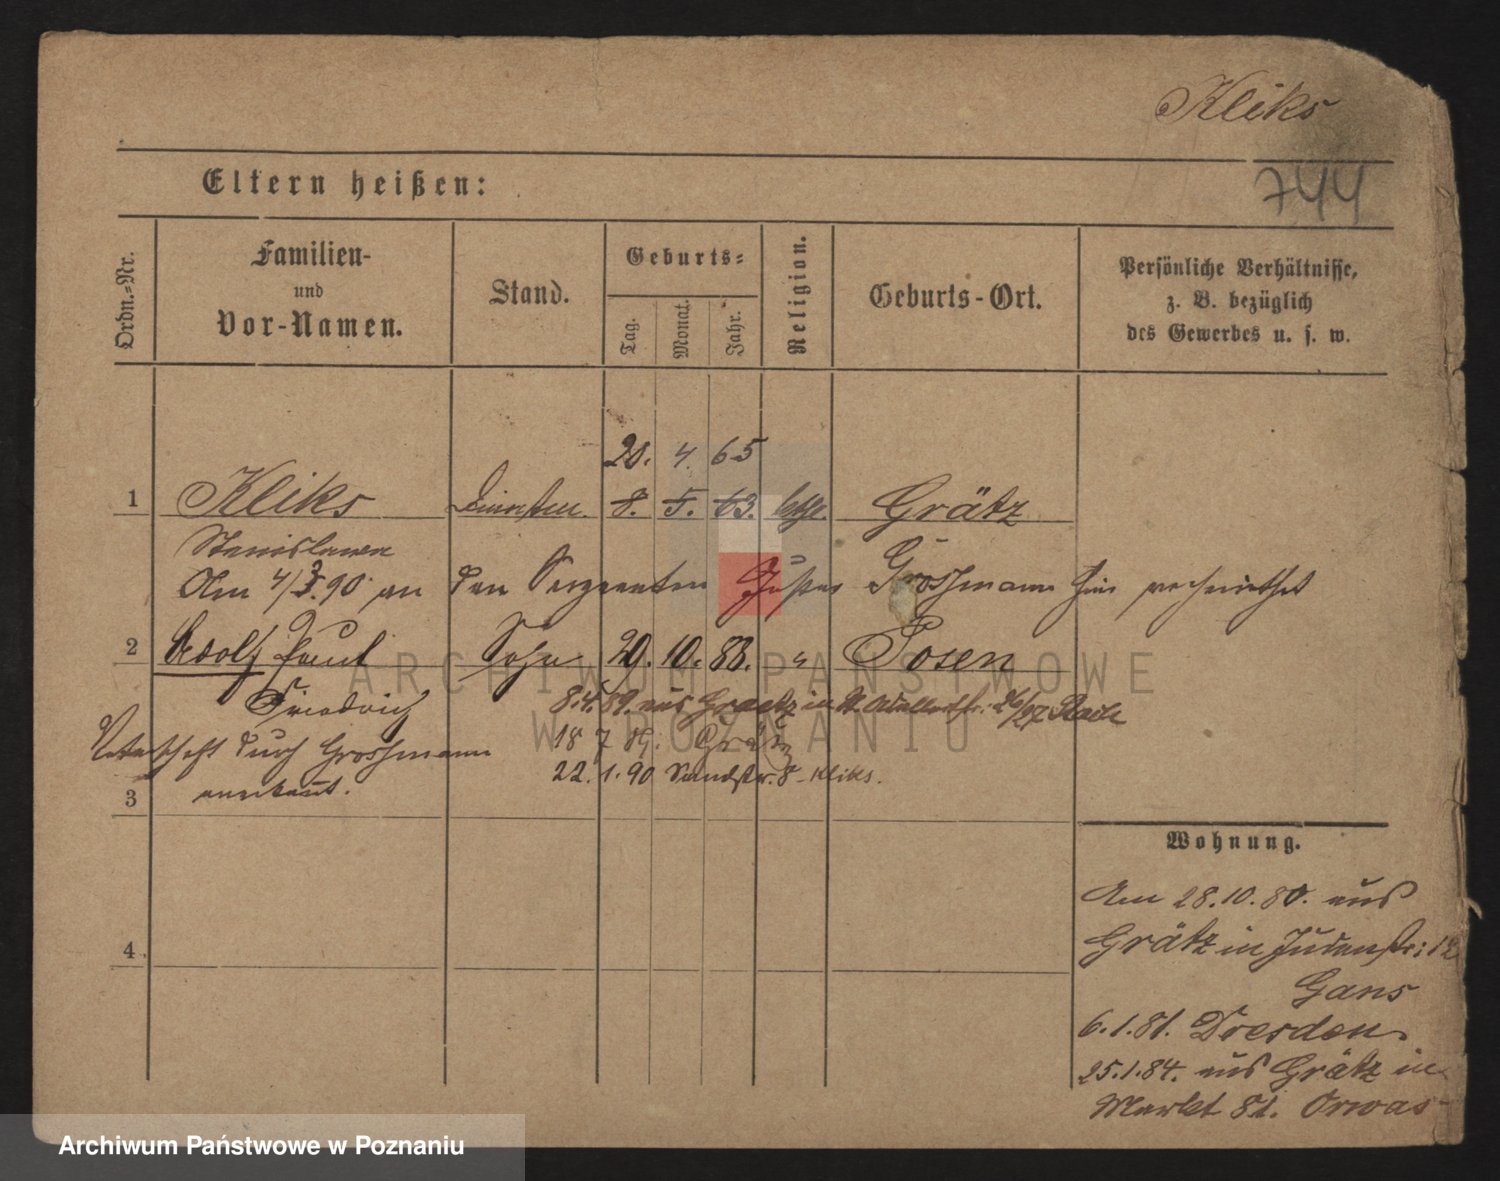 Kliks
744
Eltern heißen:
Ordn.-Nr.
Familien-
und
Vor-Namen.
Stand.
Geburts-
Tag.
Monat.
Jahr.
Religion.
Geburts-Ort.
Persönliche Verhältnisse,
z. B. bezüglich
des Gewerbes u. s. w.
20. 4. 65
1 Kliks 8. 5. 63. kath. Grätz
Stanislawa
Am 4/3.90 an den Sergeanten Großmann hier verheirathet
2 Adolf Paul Sohn 29. 10. 88. " Posen
Friedrich
8.4.89. aus Graetz in St. Adalbertstr. 26/27
Vaterschaft durch Grossmann
anerkannt.
18 7 89. Grätz
22.1.90 Sandstr. 8 - Kliks.
3
4
Wohnung.
Am 28.10.80. aus
Grätz in Judenstr: 12
Gans
6.1.81. Dresden.
25.1.84. aus Grätz in
Markt 81. Orwas
ARCHIWUM PAŃSTWOWE
W POZNANIU
Archiwum Państwowe w Poznaniu